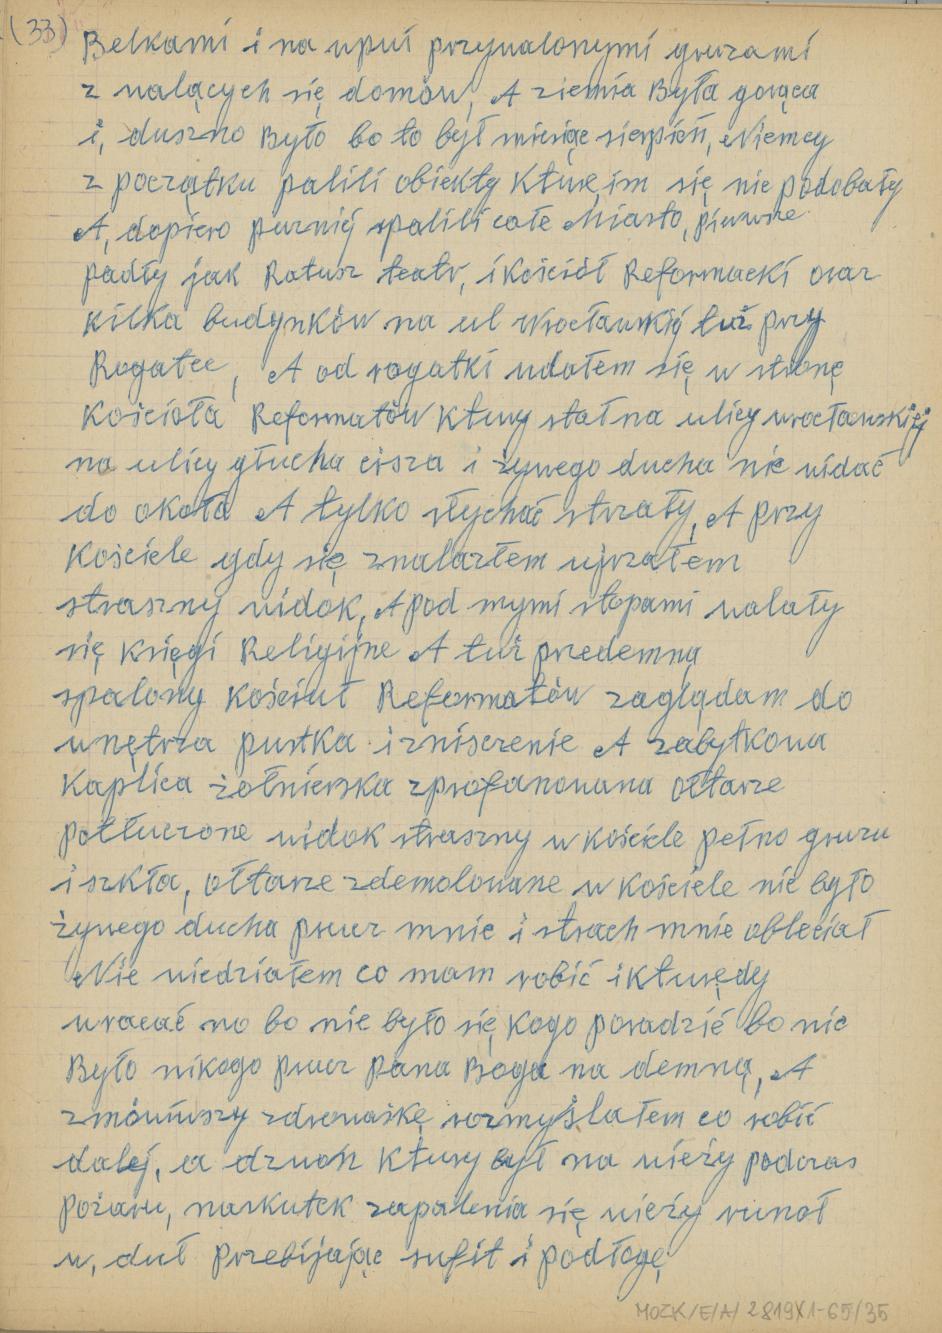 (33)
Belkami i na wpuł przywalonymi gruzami
z walących się domów, A ziemia Była gorąca
i, duszno Było bo to był miesiąc sierpień, Niemcy
z początku palili obiekty Kture im się nie podobały
A, dopiero puzniej spalili całe Miasto, pierwsze
padły jak Ratusz teatr, i Kościół Reformacki oraz
kilka budynków na ul Wrocławskiej tuż przy
Rogatce, A od rogatki udałem się w stronę
Kościoła Reformatów Ktury stał na ulicy wrocławskiej
na ulicy głucha cisza i żywego ducha nie widać
do okoła A tylko słychać strzały, A przy
Kościele gdy się znalazłem ujrzałem
straszny widok, A pod mymi stopami walały
się księgi Religijne A tuż przedemną
spalony Kościuł Reformatów zaglądam do
wnętrza pustka i zniszczenie A zabytkowa
Kaplica żołnierska zprofanowana ołtarze
potłuczone widok straszny w kościele pełno gruzu
i szkła, ołtarze zdemolowane w Kościele nie było
żywego ducha prucz mnie i strach mnie obleciał
Nie wiedziałem co mam robić i Kturędy
wracać no bo nie było się Kogo poradzić bo nie
Było nikogo prucz Pana Boga na demną, A
zmówiwszy zdrowaśkę rozmyślałem co robić
dalej, a dzwon Ktury był na wieży podczas
pożaru, naskutek zapalenia się wieży runoł
w, duł przebijając sufit i podłogę
MOZK/E/A/2819X1-65/35